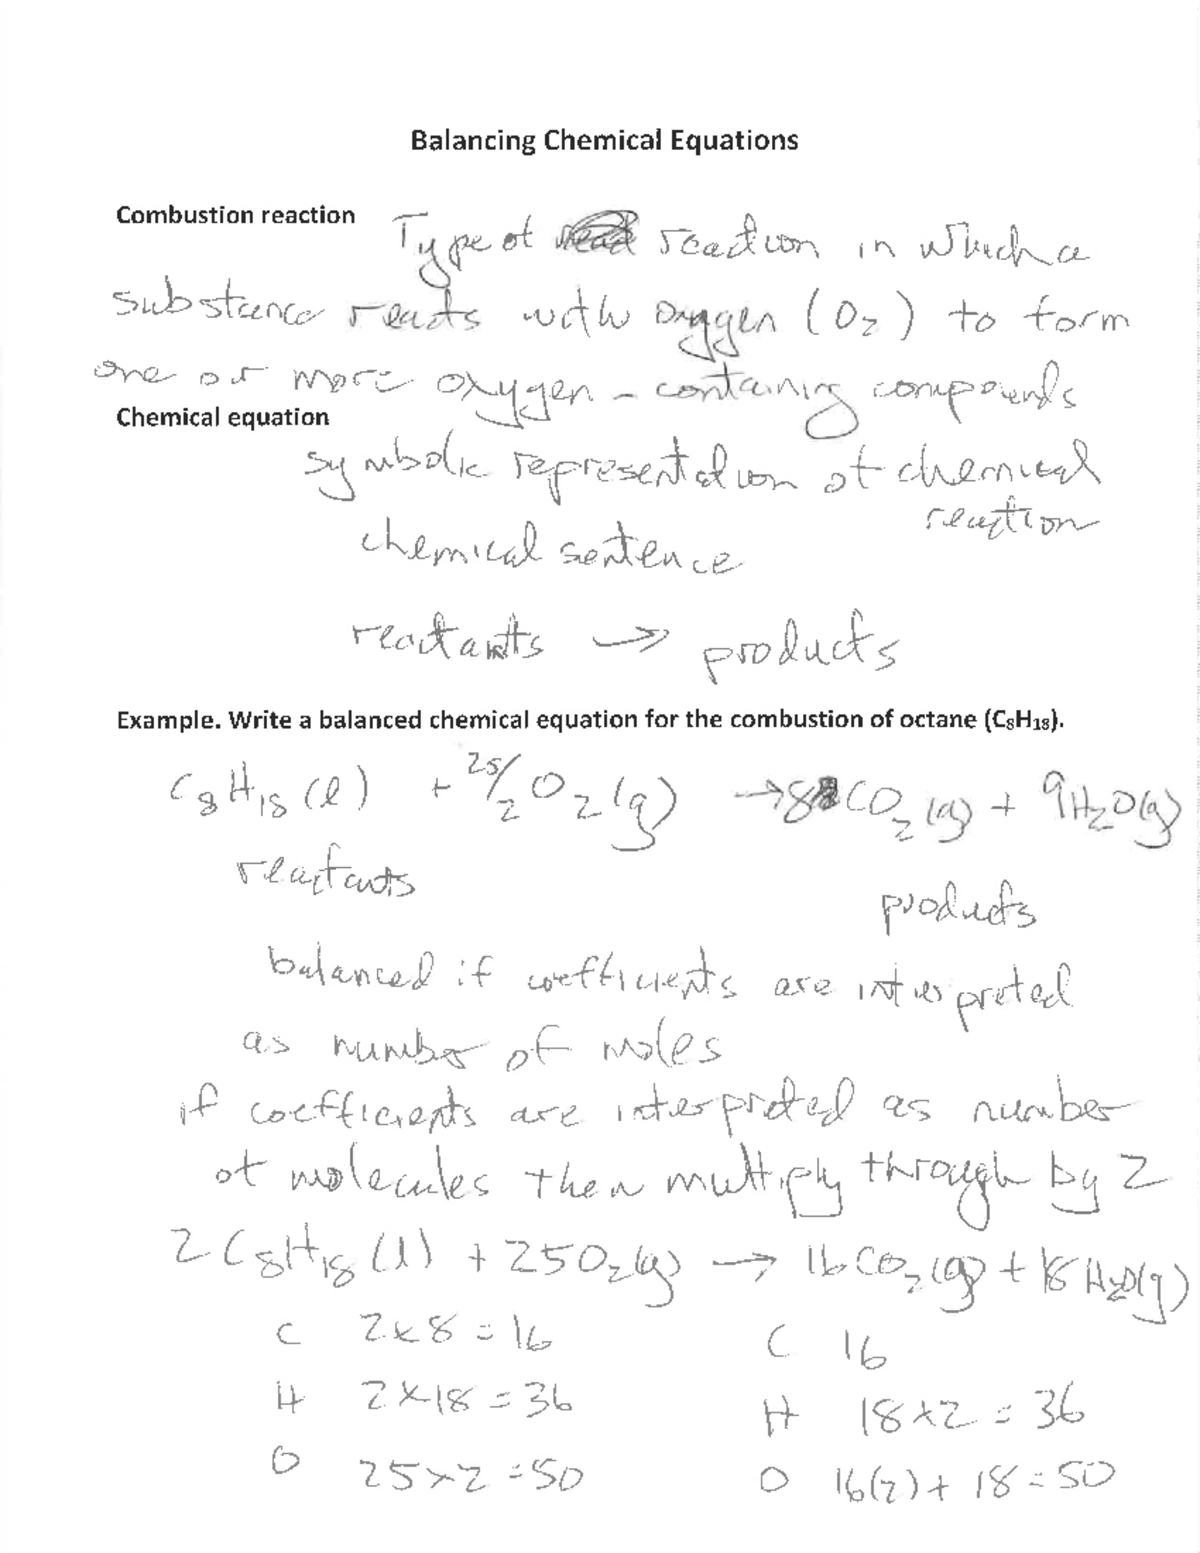 Balancing Chemical Equations
Combustion reaction
Type of reaction in which a
substance reacts with oxygen (O₂) to form
one or more oxygen - containing compounds
Chemical equation
symbolic representation of chemical
reaction
chemical sentence
reactants → products
Example. Write a balanced chemical equation for the combustion of octane (C₈H₁₈).
C₈H₁₈(l) + 25/2 O₂(g) → 8 CO₂(g) + 9H₂O(g)
reactants
products
balanced if coefficients are interpreted
as number of moles
if coefficients are interpreted as number
of molecules then multiply through by 2
2 C₈H₁₈(l) + 25O₂(g) → 16CO₂(g) + 18H₂O(g)
C 2×8 = 16 C 16
H 2×18 = 36 H 18×2 = 36
O 25×2 = 50 O 16(2) + 18 = 50